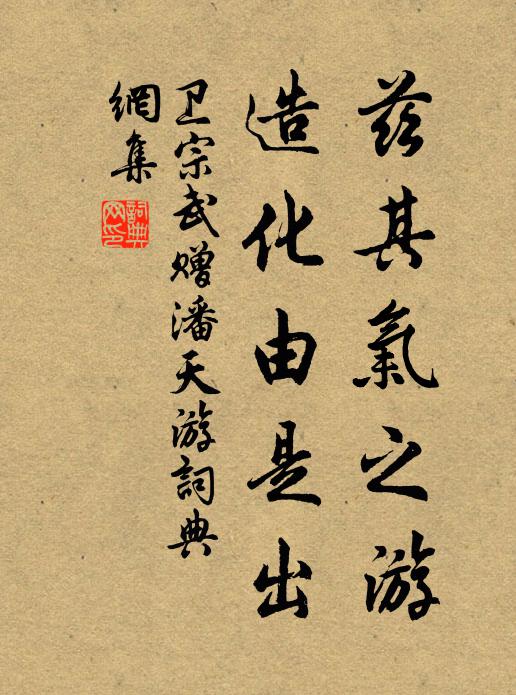 兹其氣之游
造化由是出
卫宗武赠潘天游詞典
網集
詞典
网印